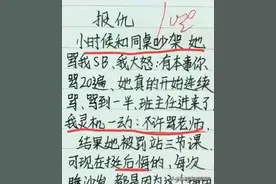 报仇
100
小时候和同桌吵架，她
骂我SB，我大怒：有本事你
骂20遍，她真的开始连续
骂，骂到一半，班主任进来了
我灵机一动：不许骂老师，
结果她被罚站三节课
可现在挺后悔的，每次
睡沙发，都是因为这